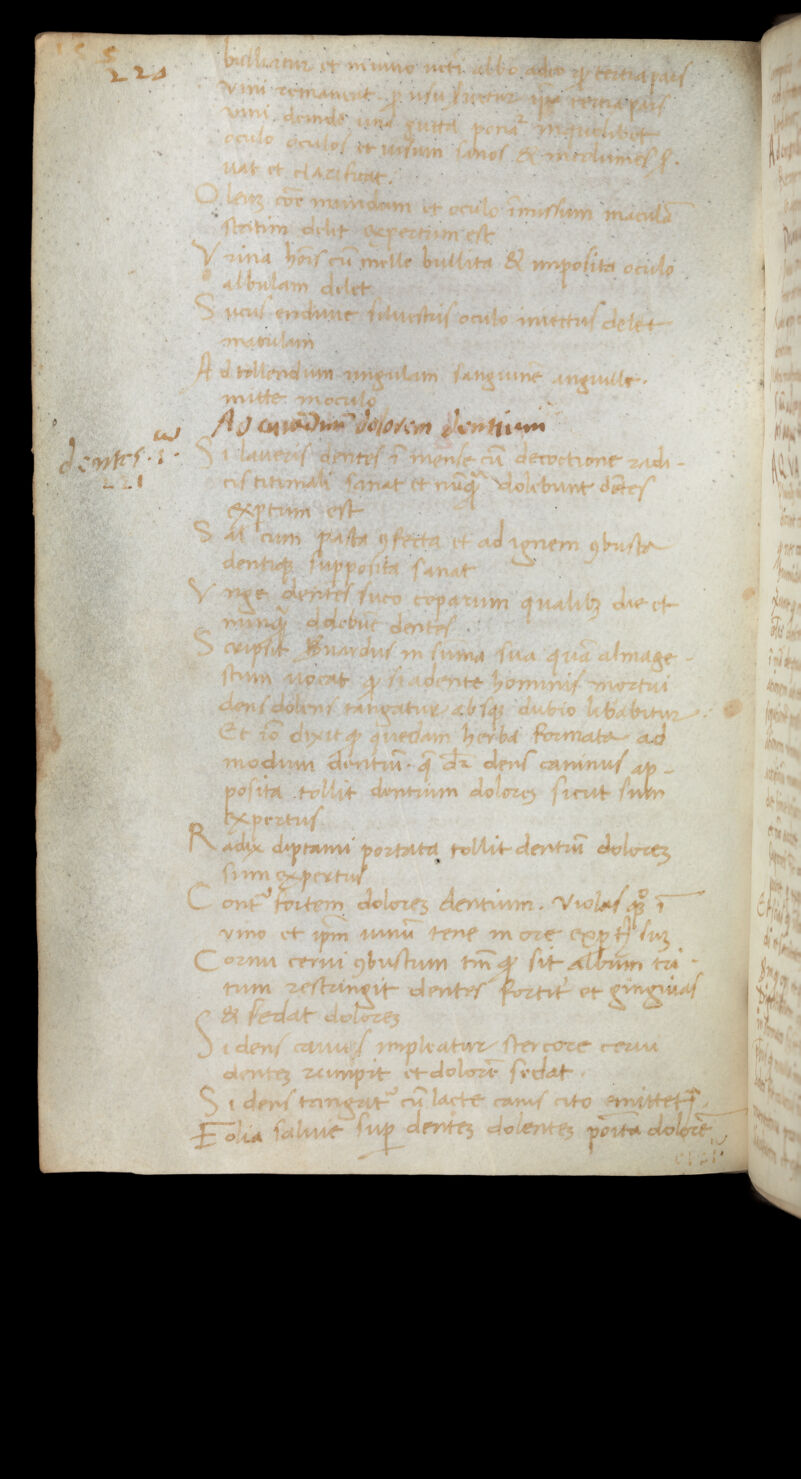 155
220
bulliatur et in vino veti albo adeo qp tertia pars
vini remaneat. p usu servetur ipa tertia pars
vini. deinde una gutta ponat in quolibet
oculo oculos et visum sanos &
vat et clarificat.
Oleuz cōe mundum et oculo īmissum maculā
statim delet expertum est
Urina hoīs cū melle bullita & imposita oculo
albulam delet
Sucus endivie silvestris oculo iniectus delet
maculam
Ad tollendum ungulam sanguinē anguille.
mitte in oculo
Ad curādum dolorem dentium
dentes. i.
221
Si laveris dentes ī mense cū decoctione radi-
cis titimali sanat et nūqā dolebunt dētes
exptum est
Sal cum pasta 9fecta et ad ignem 9busta
dentiqz supposita sanat
Unge dentes suco ceparum qualibz die et
nunqā dolebūt dentes.
Scripsit Suardus in suma sua quā almage-
stum vocat qp si a dente hominis mortui
dens dolens tangatur absqz dubio libabitur.
Et iō dixit qp quedam herba formata ad
modum dentiū. q dr dens caninus ap-
posita tollit dentium dolorez sicut sum
expertus
Radix diptami portata tollit dentiū dolorez
sum expertus
Contᵃ fortem dolorez dentium. violas ī
vino et ipm vinū tene in ore
Cornu cervi 9bustum tm qp sit album tri-
tum restringit dentes fortit et gingivas
& sedat dolorez
Si dens cavus impleatur stercore cervi
dentez rumpit et dolorē sedat.
Si dens tangat cū lacte canis cito emittet.
Folia salvie sup dentez dolentez poita dolorē